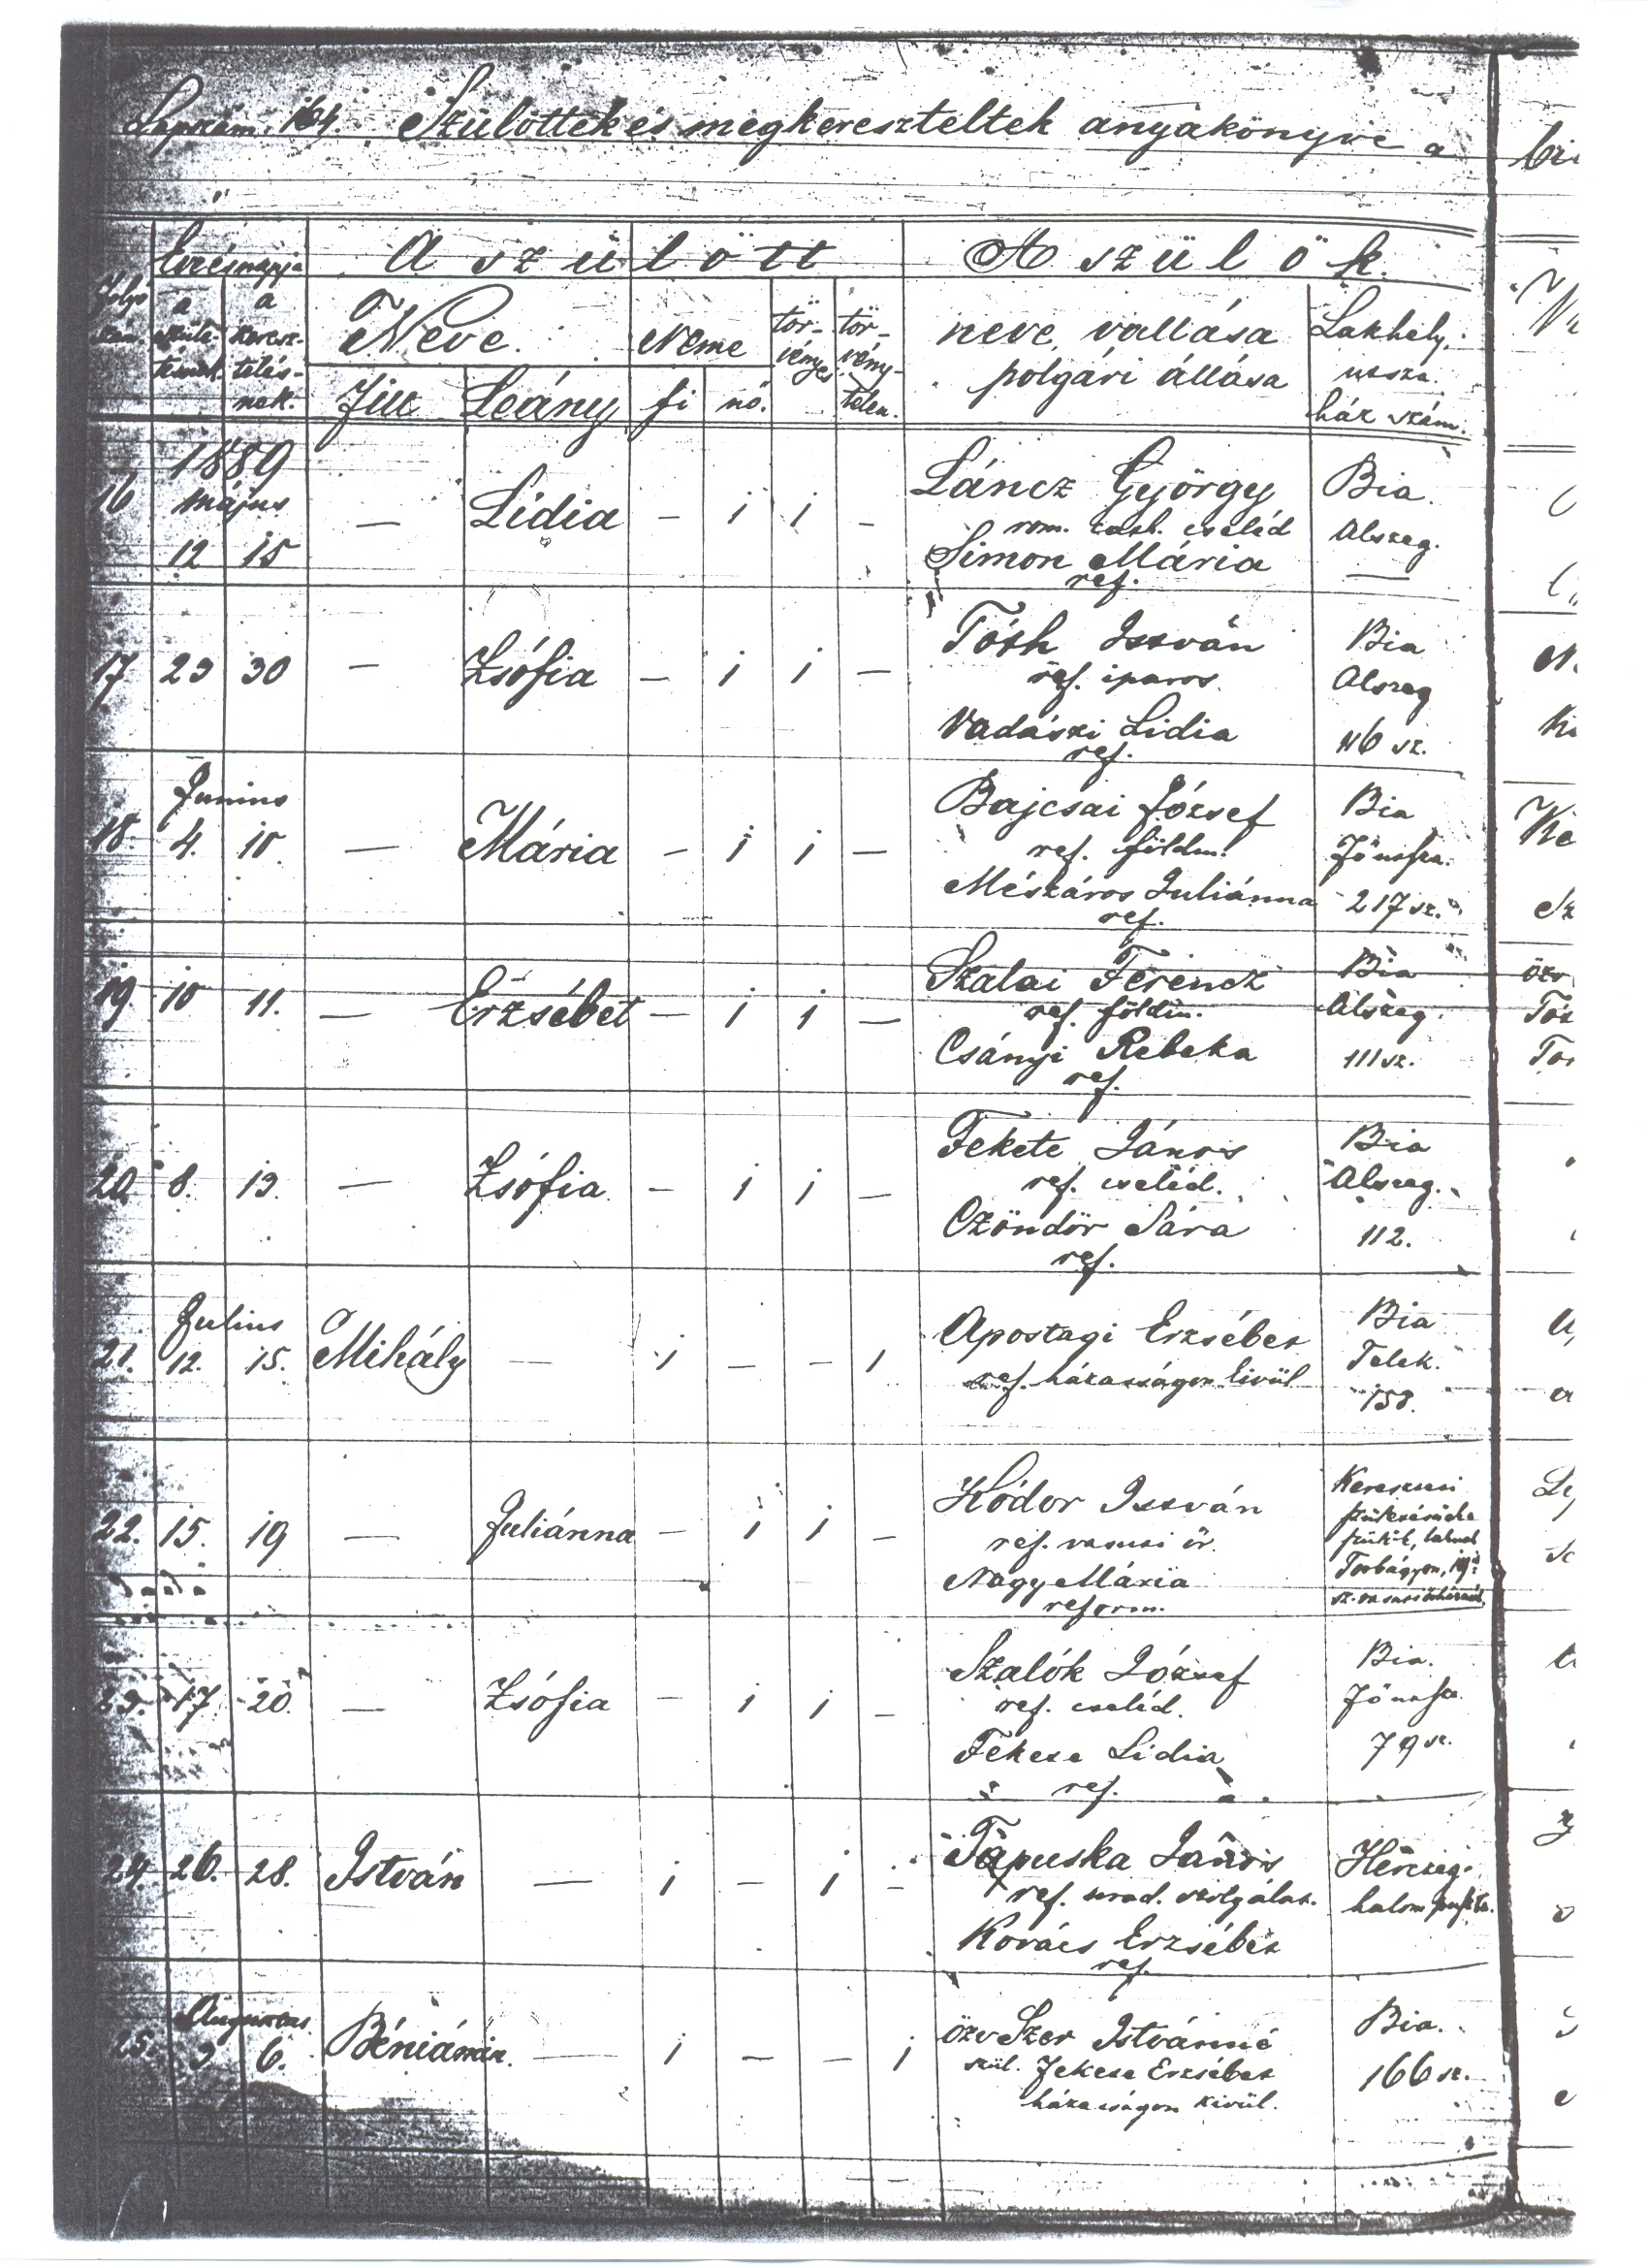 Lapszám. 164. Szülöttek és megkereszteltek anyakönyve a
Folyó szám.
Éve és napja
a születésnek
a keresztelésnek.
A szülött
Neve.
Neme
törvényes
törvénytelen.
Fiu
Leány
fi
nő.
A szülők.
neve, vallása
polgári állása
Lakhely,
utcza.
ház szám.
1889
május
16 12 15 — Lidia - 1 1 -
Láncz György
rom. cath. cseléd
Simon Mária
ref.
Bia.
Alszeg.
—
17 23 30 — Zsófia — 1 1 —
Tóth István
ref. iparos.
Vadászi Lidia
ref.
Bia
Alszeg
116 sz.
Junius
18. 4. 10. — Mária - 1 1 —
Bajcsai József
ref. földm.
Mészáros Juliánna
ref.
Bia
217 sz.
19 10 11. — Erzsébet — 1 1 —
Szalai Ferencz
ref. földm.
Csányi Rebeka
ref.
Bia
Alszeg.
111 sz.
20. 8. 13. — Zsófia - 1 1 —
Fekete János
ref. cseléd.
Czöndör Sára
ref.
Bia
Alszeg.
112.
Julius
21. 12. 15. Mihály — 1 — — 1
Apostagi Erzsébet
ref. házasságon kivül
Bia
Telek.
158.
22. 15. 19 — Juliánna — 1 1 —
Kódor István
ref. vasuti őr.
Nagy Mária
reform.
Torbágyon,
23. 17 20. — Zsófia - 1 1 —
Szalók József
ref. cseléd.
Fekete Lidia
ref.
Bia.
79 sz.
24. 26. 28. István — 1 — 1 —
Tapuska János
ref. urad. szolgálat.
Kovács Erzsébet
ref.
Herczeg-
halom puszta.
Augusztus
25. 3 6. Béniámin. — 1 — — 1
özv Szer Istvánné
szül. Fekete Erzsébet
házasságon kivül.
Bia.
166 sz.